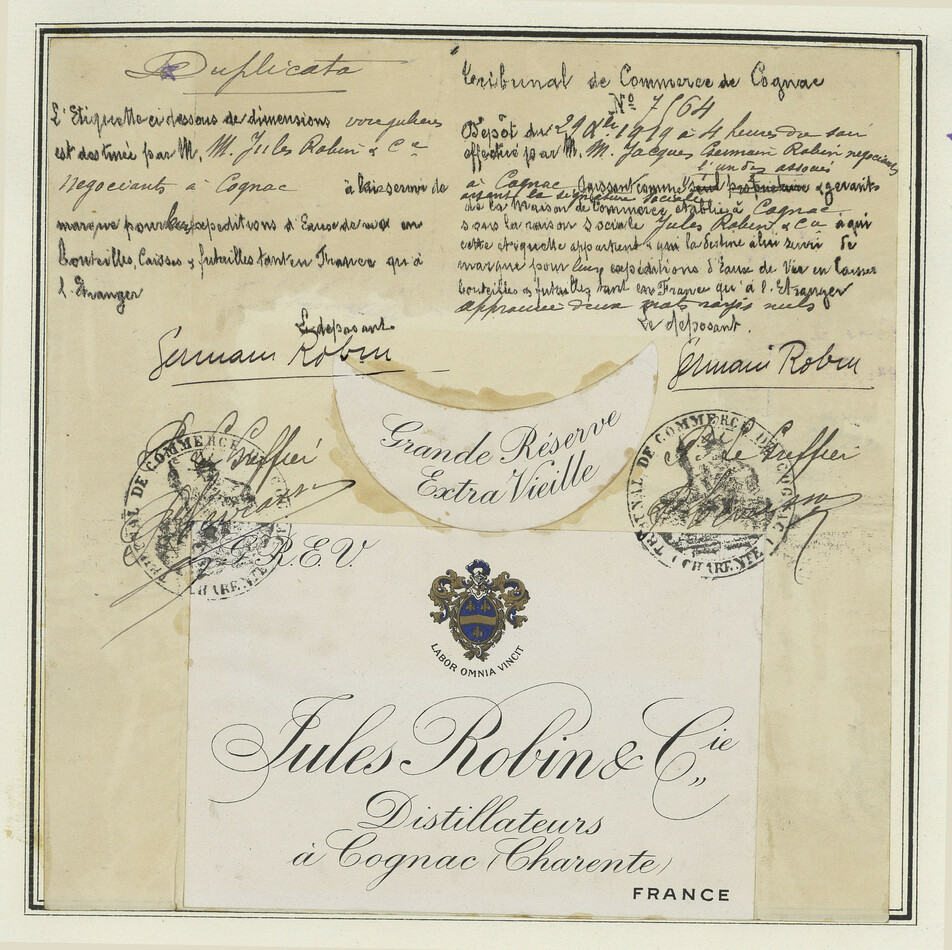 Duplicata
L'Etiquette ci dessous de dimensions irregulieres
est destinée par M. M. Jules Robin & Cie
Negociants à Cognac à lui servir de
marque pour les expeditions d'Eaux de vie en
Bouteilles, Caisses & futailles tant en France qu'à
l'Etranger
Le déposant
Germain Robin
Tribunal de Commerce de Cognac
No 7564
Dépôt du 29 1919 à 4 heures du soir
effectué par M. M. Jacques Germain Robin negociant
à Cognac l'un des associés
agissant comme seul & gerants
ayant la signature sociale
de la Maison de Commerce, établie à Cognac
sous la raison sociale Jules Robin & Cie à qui
cette étiquette appartient & qui la destine à lui servir de
marque pour leurs expéditions d'Eaux de Vie en Caisses
bouteilles & futailles tant en France qu'à l'Etranger
approuvé deux mots rayés nuls
Le déposant.
Germain Robin
Le Greffier
TRIBUNAL DE COMMERCE DE COGNAC
(CHARENTE)
Le Greffier
TRIBUNAL DE COMMERCE DE COGNAC
(CHARENTE)
Grande Réserve
Extra Vieille
G.R.E.V.
LABOR OMNIA VINCIT
Jules Robin & Cie
Distillateurs
à Cognac (Charente)
FRANCE